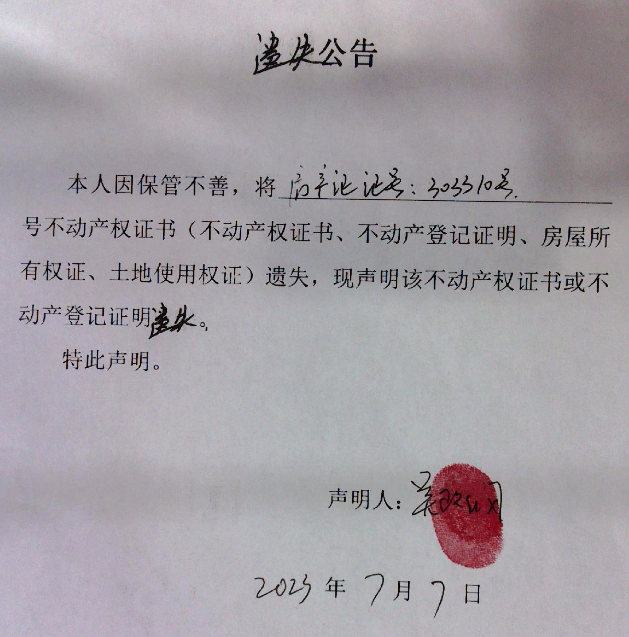 遗失公告
本人因保管不善，将 房产证证号：303310号.
号不动产权证书（不动产权证书、不动产登记证明、房屋所
有权证、土地使用权证）遗失，现声明该不动产权证书或不
动产登记证明遗失。
特此声明。
声明人：
2023年7月7日